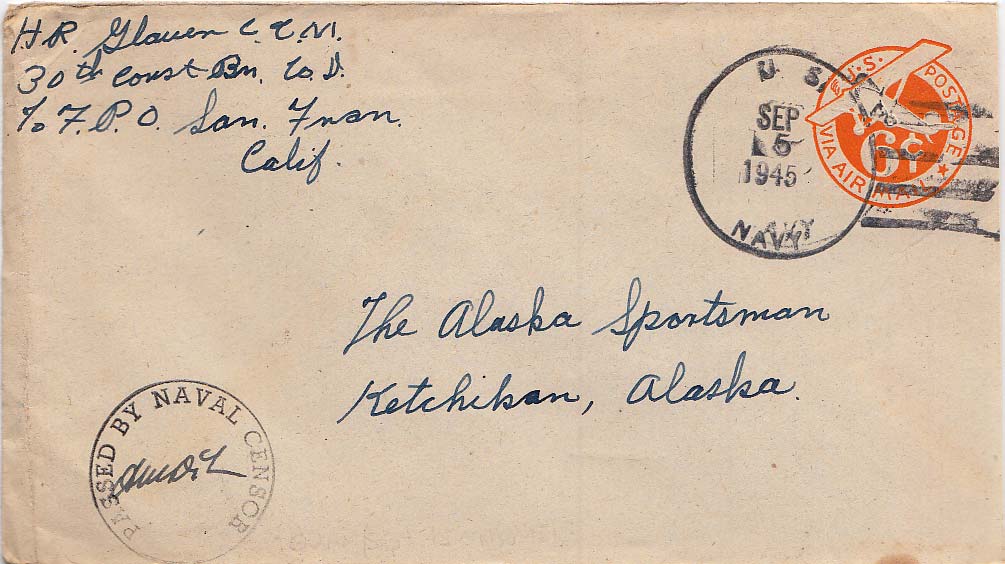 H.R. Glauen C.C.M.
30th Const Bn. Co. D.
% F.P.O. San. Fran.
Calif.
U.S.
SEP
5
1945
NAVY
U.S. POSTAGE
6¢
VIA AIR MAIL
The Alaska Sportsman
Ketchikan, Alaska.
PASSED BY NAVAL CENSOR